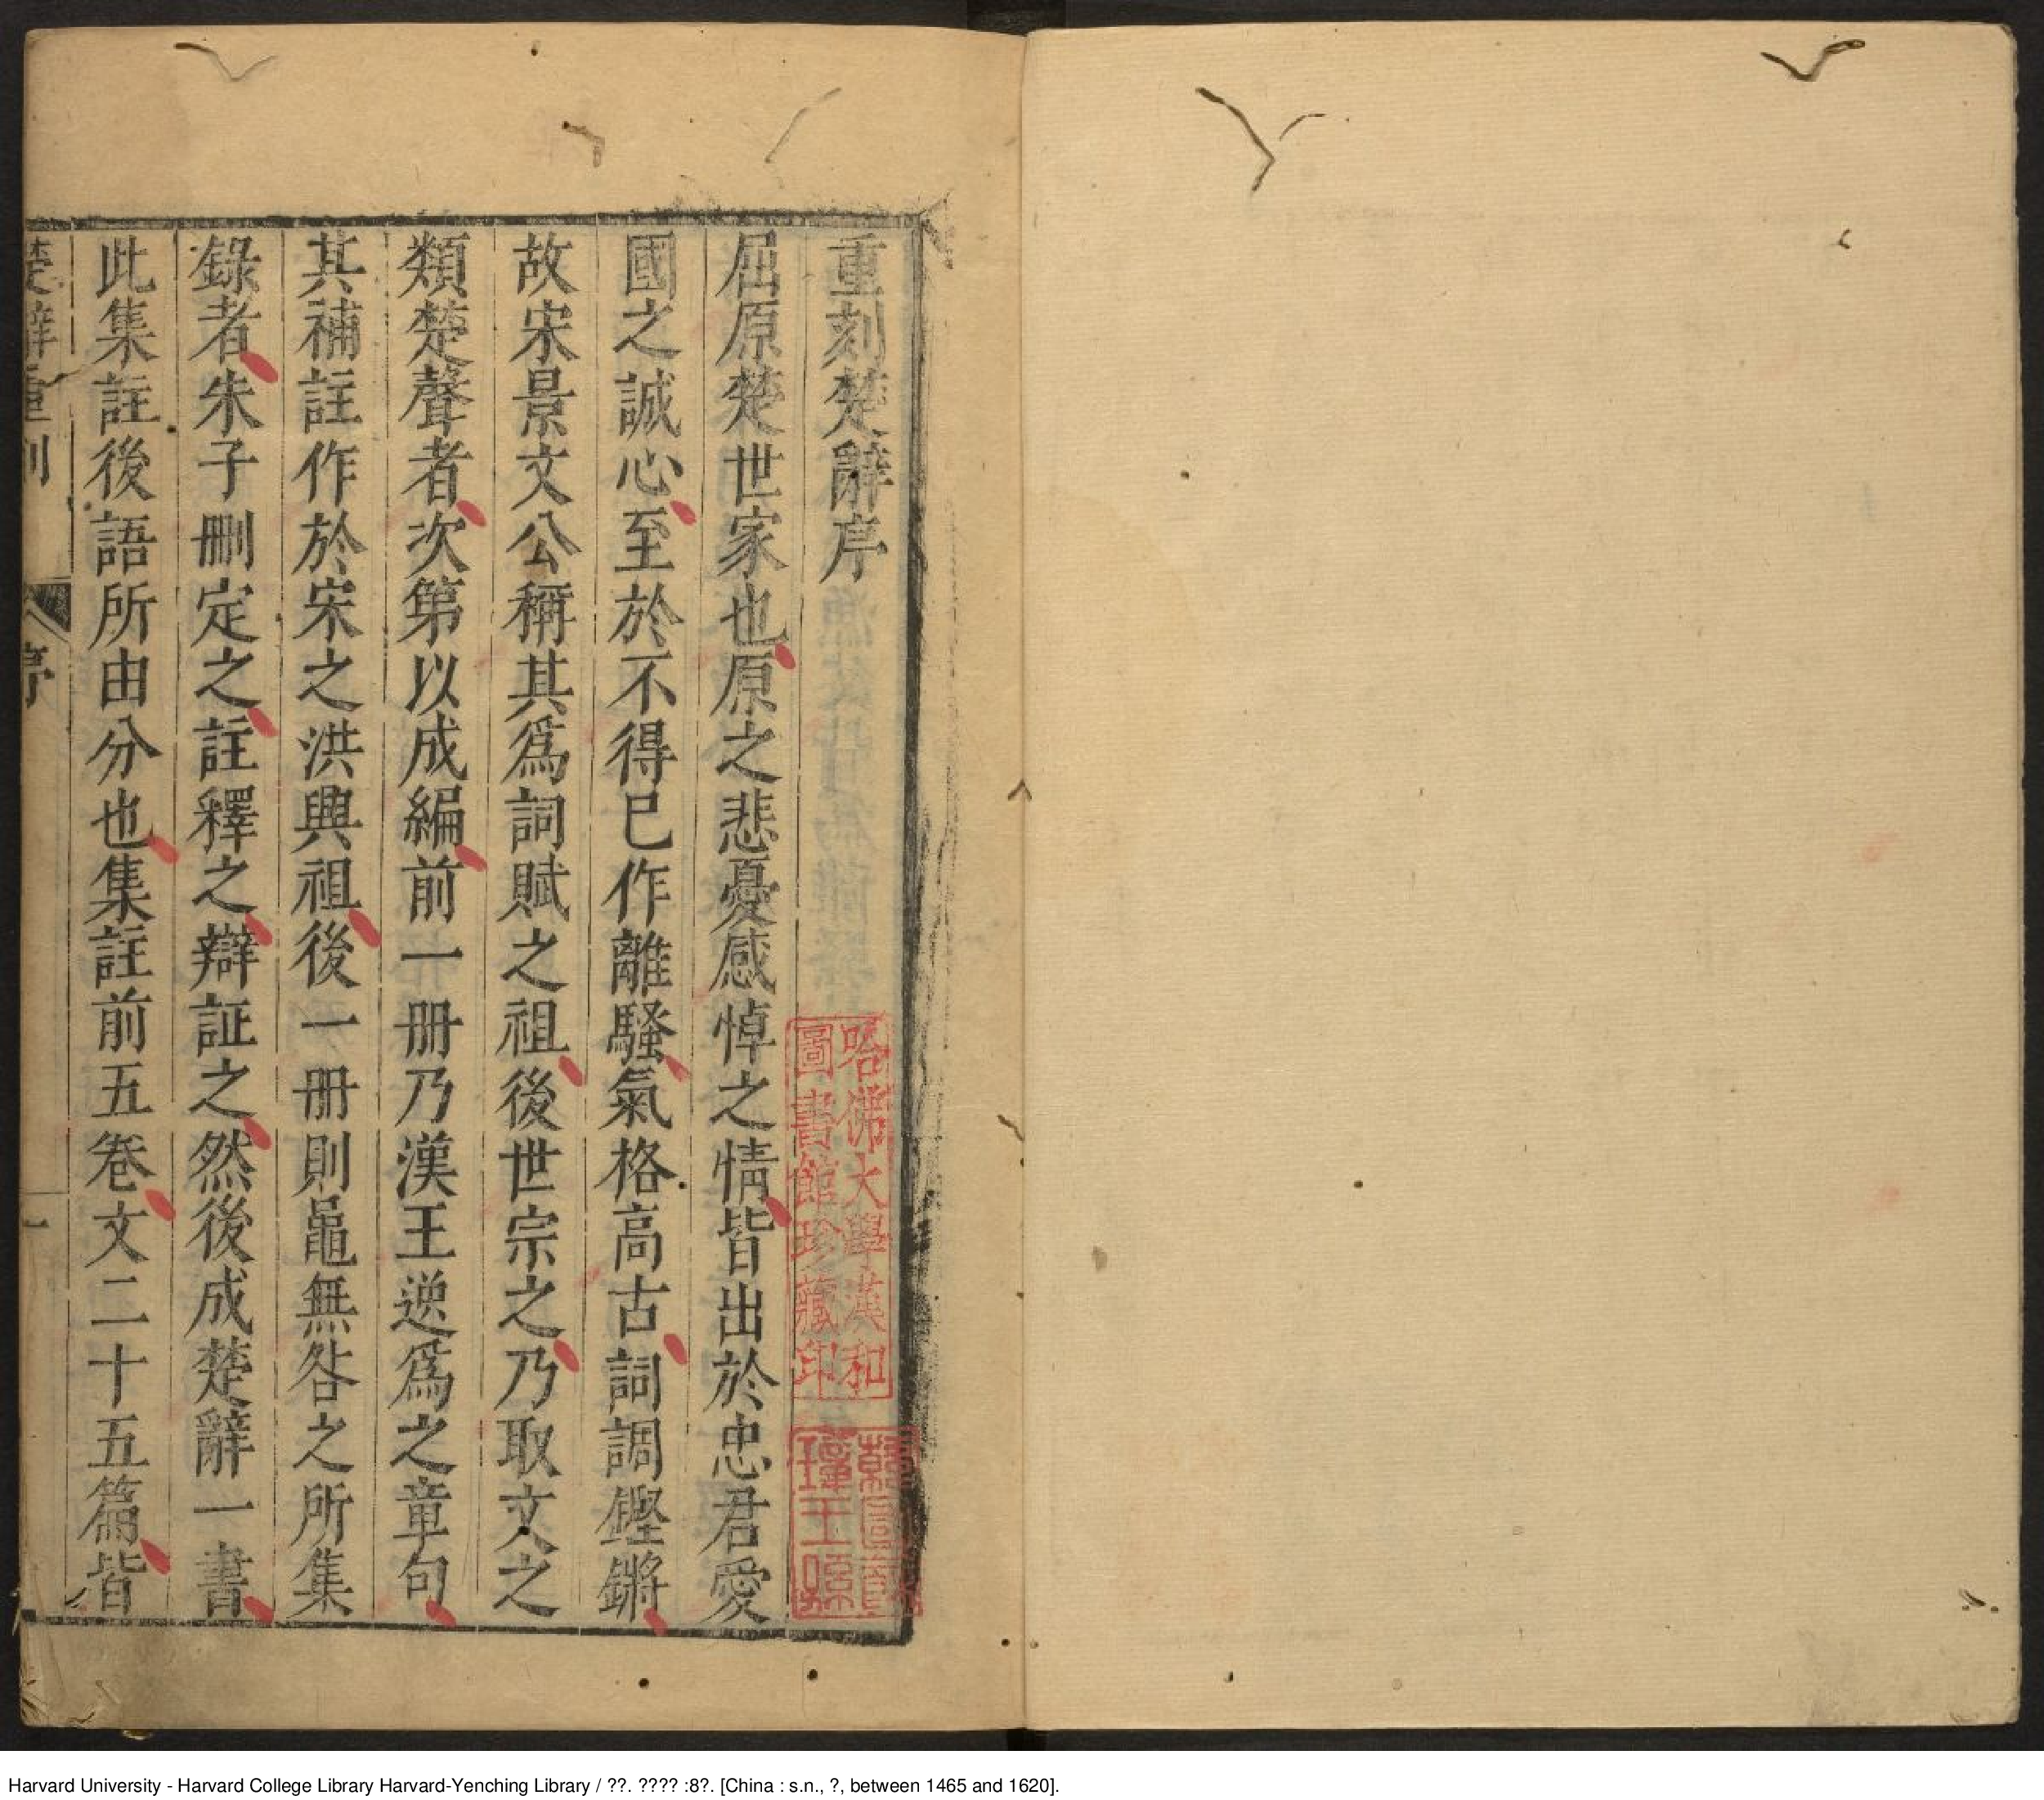 重刻楚辭序
屈原楚世家也原之悲憂感悼之情皆出於忠君愛
國之誠心至於不得已作離騷氣格高古詞調鏗鏘
故宋景文公稱其爲詞賦之祖後世宗之乃取文之
類楚聲者次第以成編前一册乃漢王逸爲之章句
其補註作於宋之洪興祖後一册則黽無咎之所集
錄者朱子刪定之註釋之辯証之然後成楚辭一書
此集註後語所由分也集註前五卷文二十五篇皆
楚辭重刻
序
一
哈佛大學漢和
圖書館珍藏印
Harvard University - Harvard College Library Harvard-Yenching Library / ??. ???? :8?. [China : s.n., ?, between 1465 and 1620].